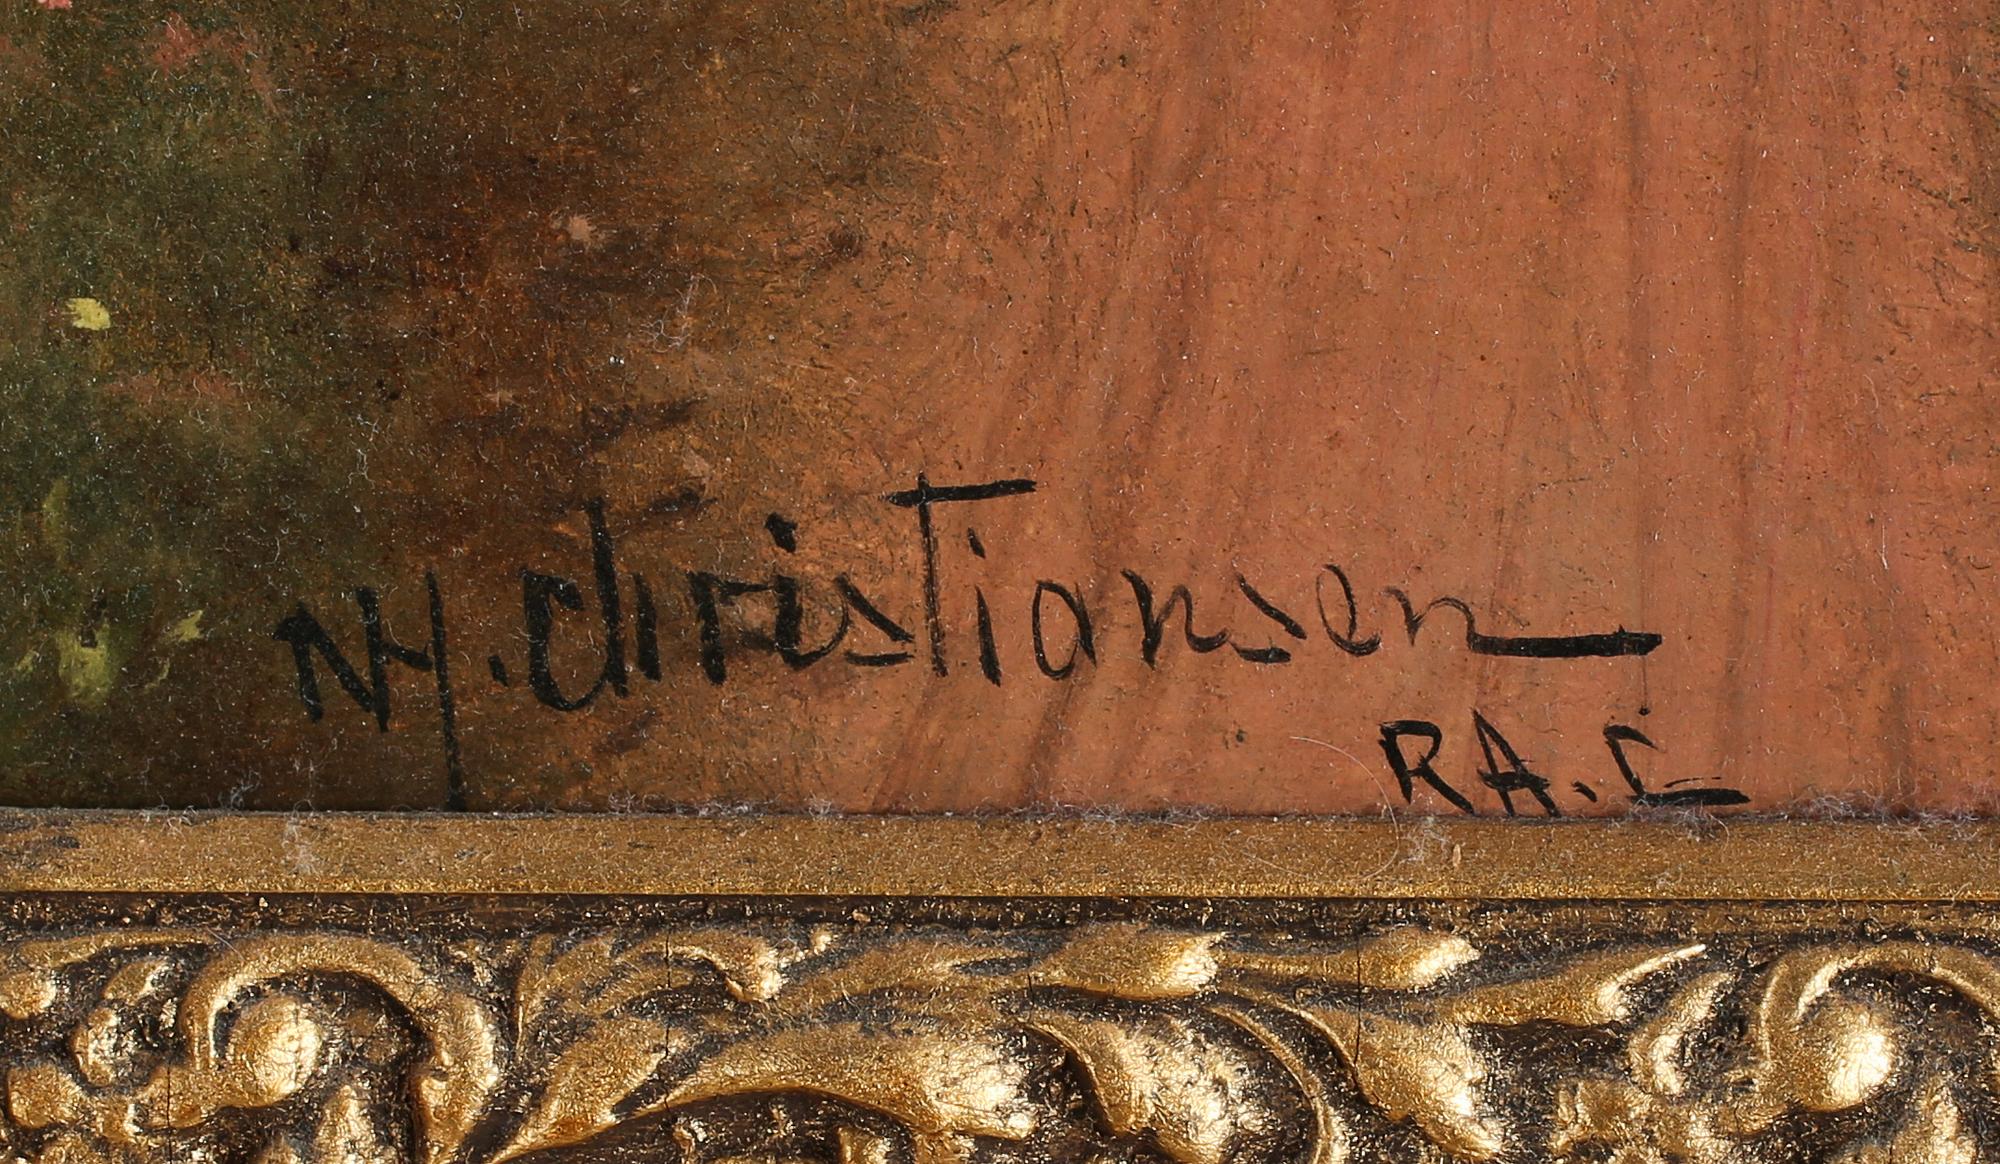 NH. Christiansen
RA. C